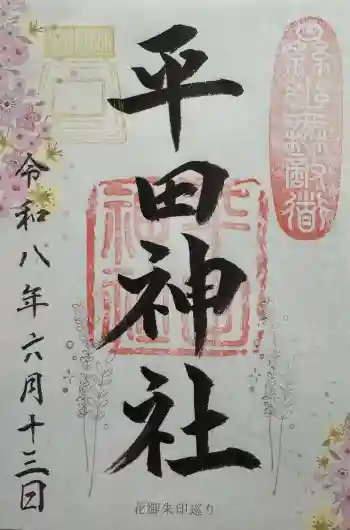 平田神社
令和八年六月十三日
花御朱印巡り